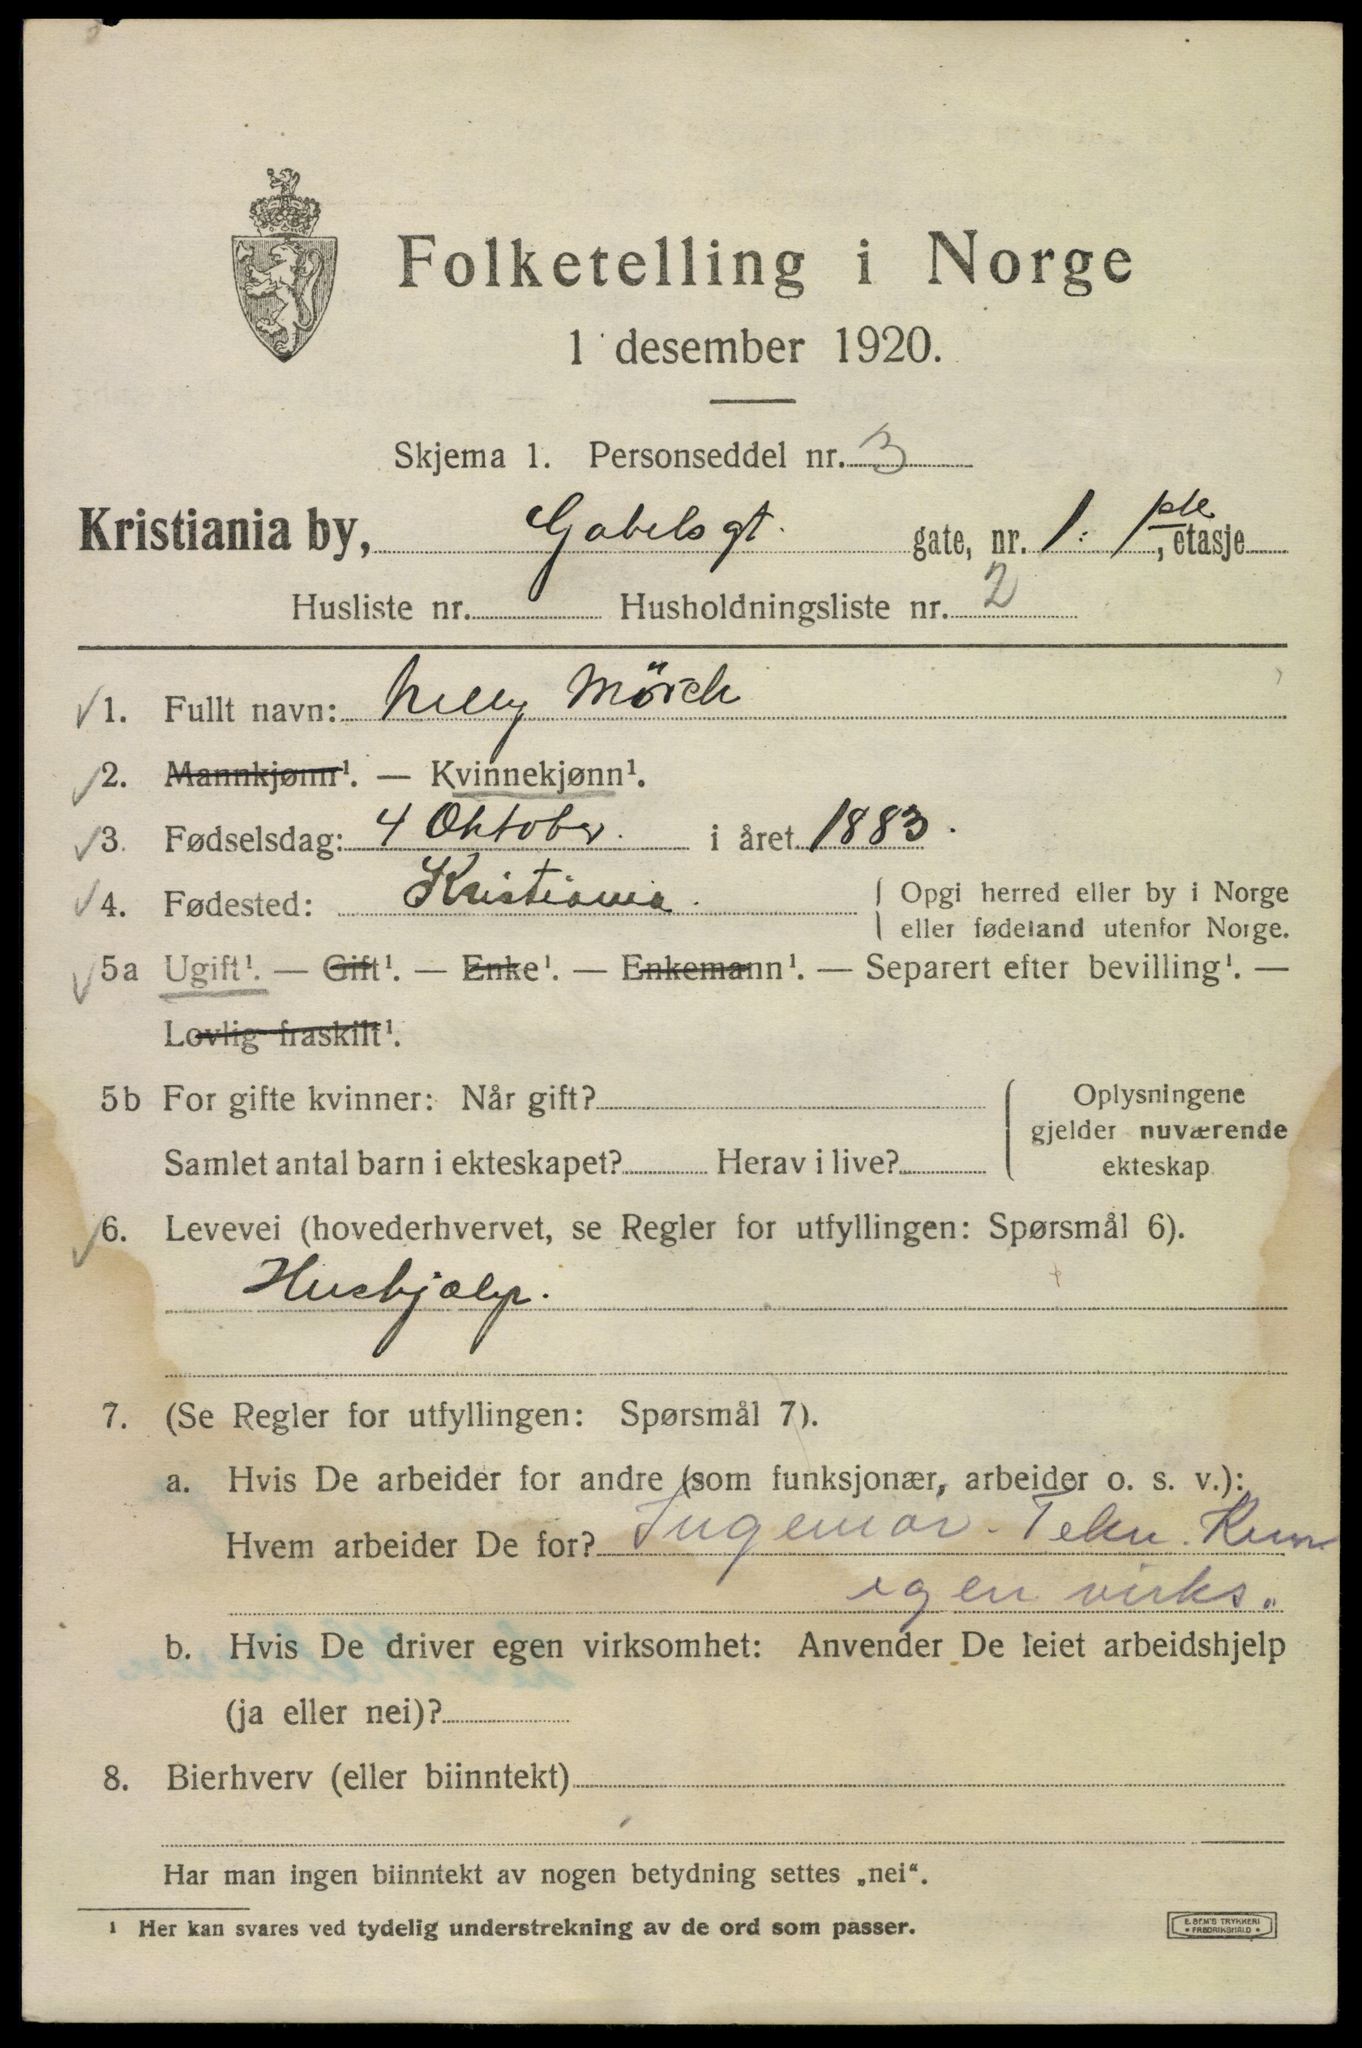 Folketelling i Norge
1 desember 1920.
Skjema 1. Personseddel nr. 3
Kristiania by, Gabels gt. gate, nr. 1. 1ste, etasje
Husliste nr. Husholdningsliste nr. 2
1. Fullt navn: Nelly Mörch
2. Mannkjønn¹. — Kvinnekjønn¹.
3. Fødselsdag: 4 Oktober. i året 1883.
4. Fødested: Kristiania. Opgi herred eller by i Norge
eller fødeland utenfor Norge.
5a Ugift¹. — Gift¹. — Enke¹. — Enkemann¹. — Separert efter bevilling¹. —
Lovlig fraskilt¹.
5b For gifte kvinner: Når gift? Oplysningene
gjelder nuværende
Samlet antal barn i ekteskapet? Herav i live? ekteskap
6. Levevei (hovederhvervet, se Regler for utfyllingen: Spørsmål 6).
Hushjælp.
7. (Se Regler for utfyllingen: Spørsmål 7).
a. Hvis De arbeider for andre (som funksjonær, arbeider o. s. v.):
Hvem arbeider De for? Ingeniør.
egen virks.
b. Hvis De driver egen virksomhet: Anvender De leiet arbeidshjelp
(ja eller nei)?
8. Bierhverv (eller biinntekt)
Har man ingen biinntekt av nogen betydning settes „nei“.
¹ Her kan svares ved tydelig understrekning av de ord som passer.
E. SEM'S TRYKKERI
FREDRIKSHALD